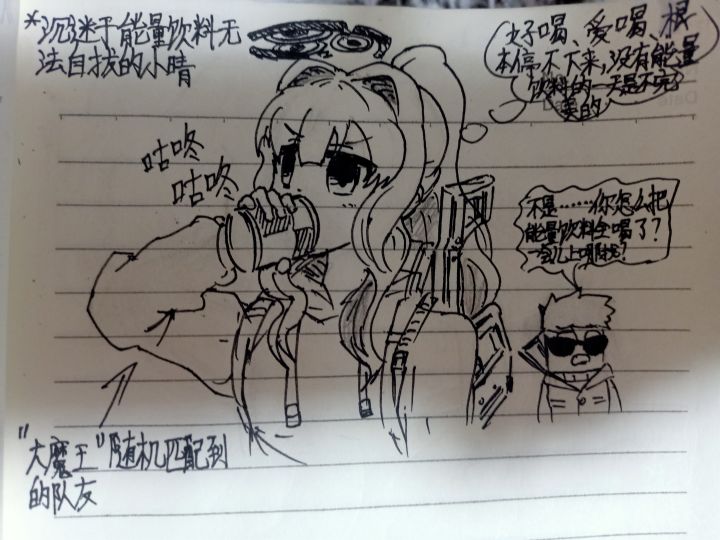 *沉迷于能量饮料无
法自拔的小晴
好喝、爱喝、根
本停不下来,没有能量
饮料的一天是不完
美的
咕咚
咕咚
不是……你怎么把
能量饮料全喝了?
一会儿上哪找?
"大魔王"随机匹配到
的队友